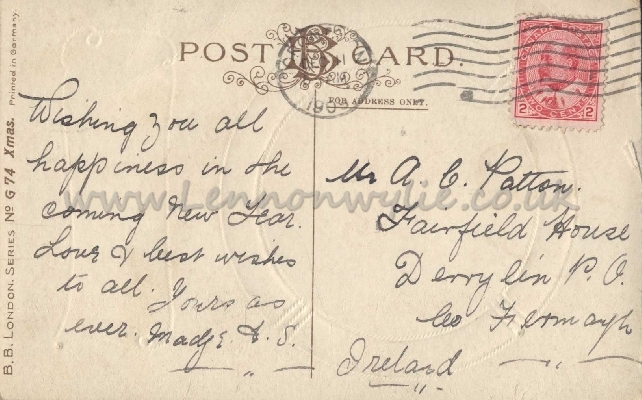 POST CARD.
BB
FOR ADDRESS ONLY.
2 CENTS 2
B.B. LONDON. SERIES No G 74 Xmas. Printed in Germany
Wishing you all
happiness in the
coming New Year.
Love & best wishes
to all. Yours as
ever. Madge A. S.
Mr A. C. Patton.
Fairfield House
Derrylin P. O.
Co Fermagh
Ireland
www.Lennonwylie.co.uk